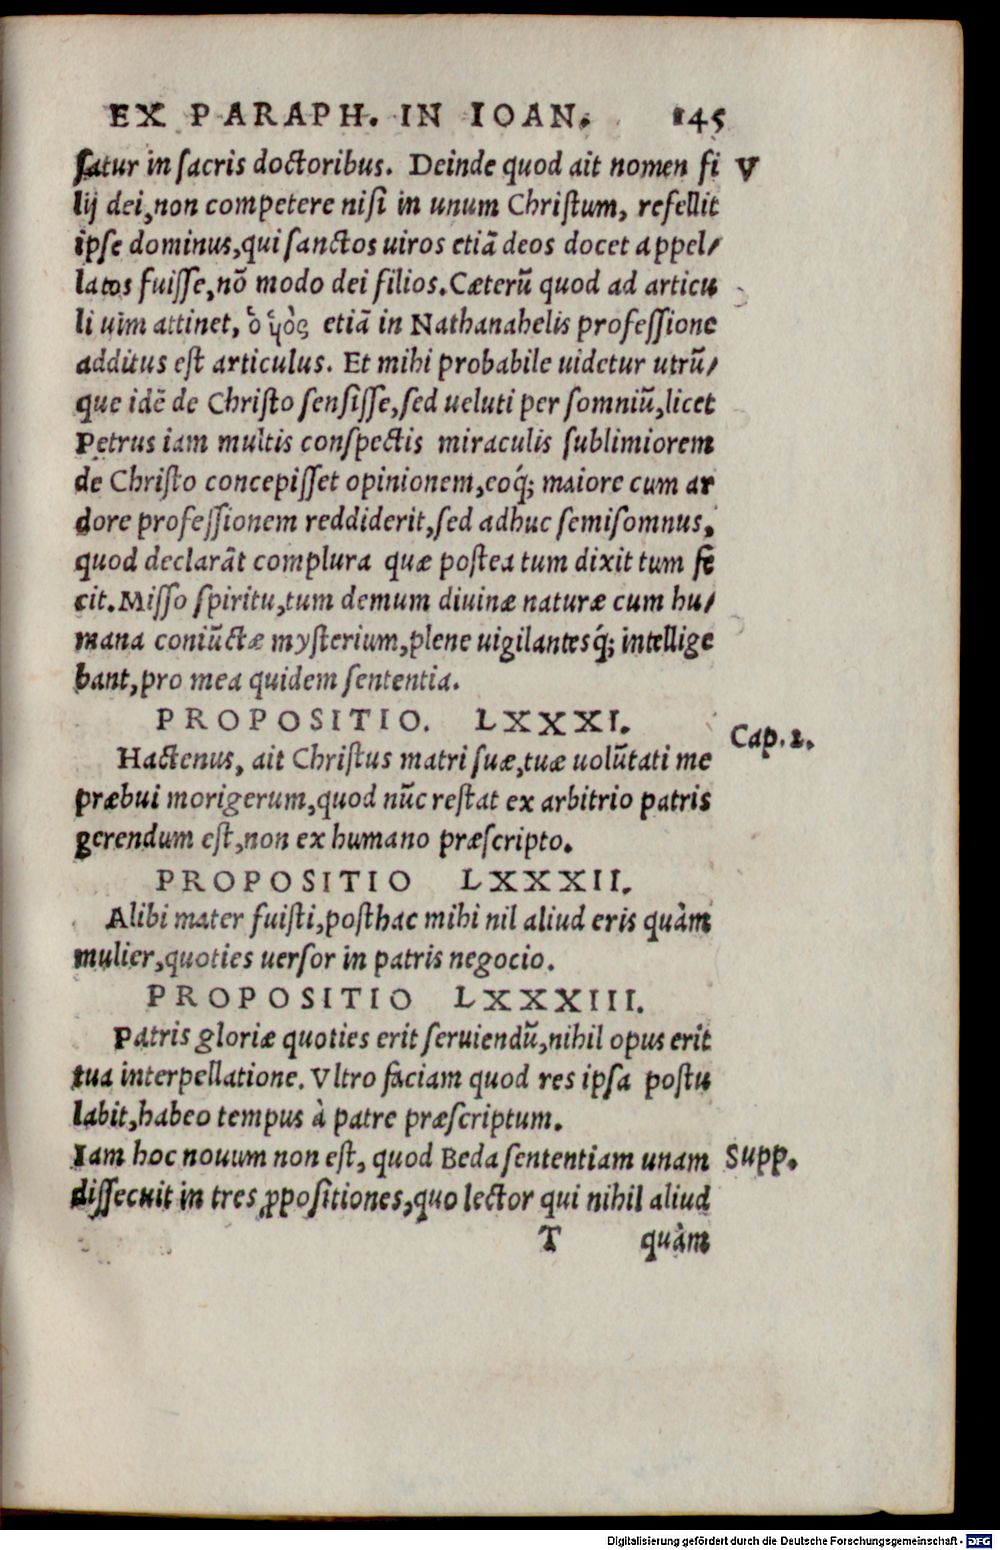 EX PARAPH. IN IOAN. 145
ſatur in ſacris doctoribus. Deinde quod ait nomen fi V
lij dei, non competere niſi in unum Chriſtum, refellit
ipſe dominus, qui ſanctos uiros etiā deos docet appel/
latos fuiſſe, nō modo dei filios. Cæterū quod ad articu
li uim attinet, ὁ ὑὸς etiā in Nathanahelis profeſſione
additus eſt articulus. Et mihi probabile uidetur utrū/
que idē de Chriſto ſenſiſſe, ſed ueluti per ſomniū, licet
Petrus iam multis conſpectis miraculis ſublimiorem
de Chriſto concepiſſet opinionem, eoq́; maiore cum ar
dore profeſſionem reddiderit, ſed adhuc ſemiſomnus,
quod declarāt complura quæ poſtea tum dixit tum fe
cit. Miſſo ſpiritu, tum demum diuinæ naturæ cum hu/
mana coniūctæ myſterium, plene uigilantesq́; intellige
bant, pro mea quidem ſententia.
PROPOSITIO. LXXXI.
Cap. 2.
Hactenus, ait Chriſtus matri ſuæ, tuæ uolūtati me
præbui morigerum, quod nūc reſtat ex arbitrio patris
gerendum eſt, non ex humano præſcripto.
PROPOSITIO LXXXII.
Alibi mater fuiſti, poſthac mihi nil aliud eris quàm
mulier, quoties uerſor in patris negocio.
PROPOSITIO LXXXIII.
Patris gloriæ quoties erit ſeruiendū, nihil opus erit
tua interpellatione. Vltro faciam quod res ipſa poſtu
labit, habeo tempus à patre præſcriptum.
Iam hoc nouum non eſt, quod Beda ſententiam unam Supp.
diſſecuit in tres ꝓpoſitiones, quo lector qui nihil aliud
T quàm
Digitalisierung gefördert durch die Deutsche Forschungsgemeinschaft - DFG